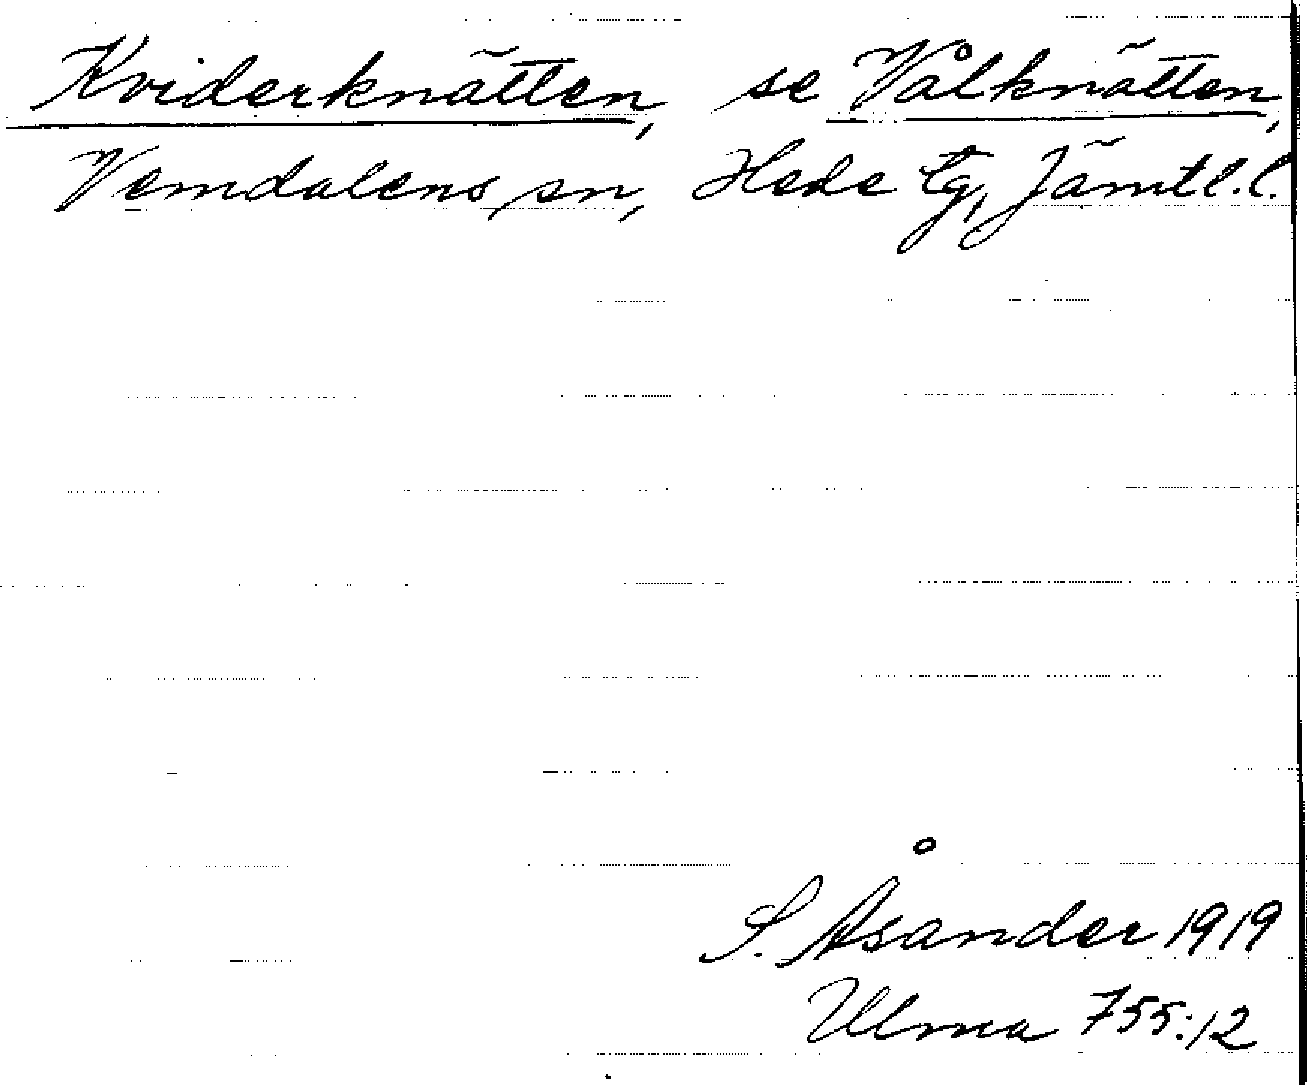 Kviderknätten, se Vålknätten,
Vemdalens sn, Hede tg, Jämtl. l.
S. Åsander 1919
Ulma 755:12